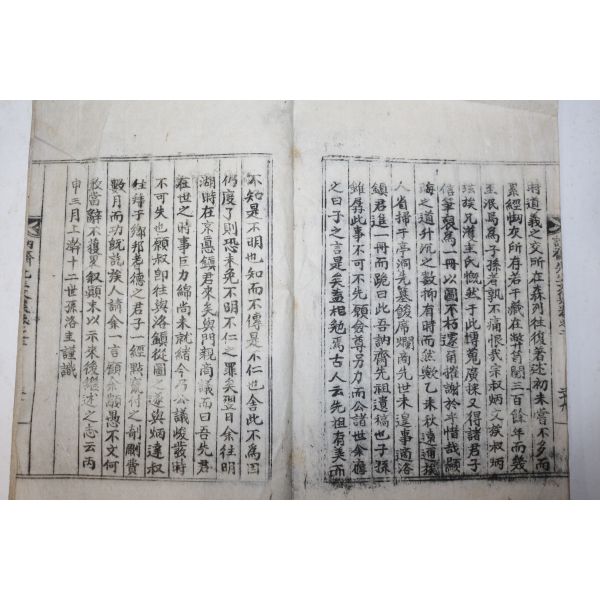 時道義之交所在森列往復著述初未嘗不多而
累經蜩灰所存若干藏在弊笥閱三百餘年而幾
至泯焉爲子孫者孰不痛恨我宗叔炳文族叔炳
玹族兄濰圭氏慨然于此博蒐廣採又得諸君子
信筆裒爲一冊以圖不朽還甭摧謝於乎惜哉顯
晦之道升沉之數抑有時而然歟乙未秋遠通族
人省掃于亭洞先墓餕席爛商先世未遑事適洛
鎭君進一冊而跪曰此吾訥齋先祖遺稿也子孫
雖孱此事不可不先願僉尊努力而公諸世余應
之曰子之言是矣盍相勉焉古人云先祖有美而
不知是不明也知而不傳是不仁也舍此不爲因
仍度了則恐未免不明不仁之罪矣翌日余往明
湖時在京慝鎭君來矣與門親商議而曰吾先君
在世之時事巨力綿尚未就緒今乃公議峻發時
不可失也願叔卽往與洛鎭從圖之遂與炳達叔
往纬于鄉邦老德之君子一經點竄付之剞劂費
數月而功旣訖族人請余一言顧余顓愚不文何
敢當辭不獲畧敘顚末以示來後繼述之志云丙
申三月上澣十二世孫洛圭謹識